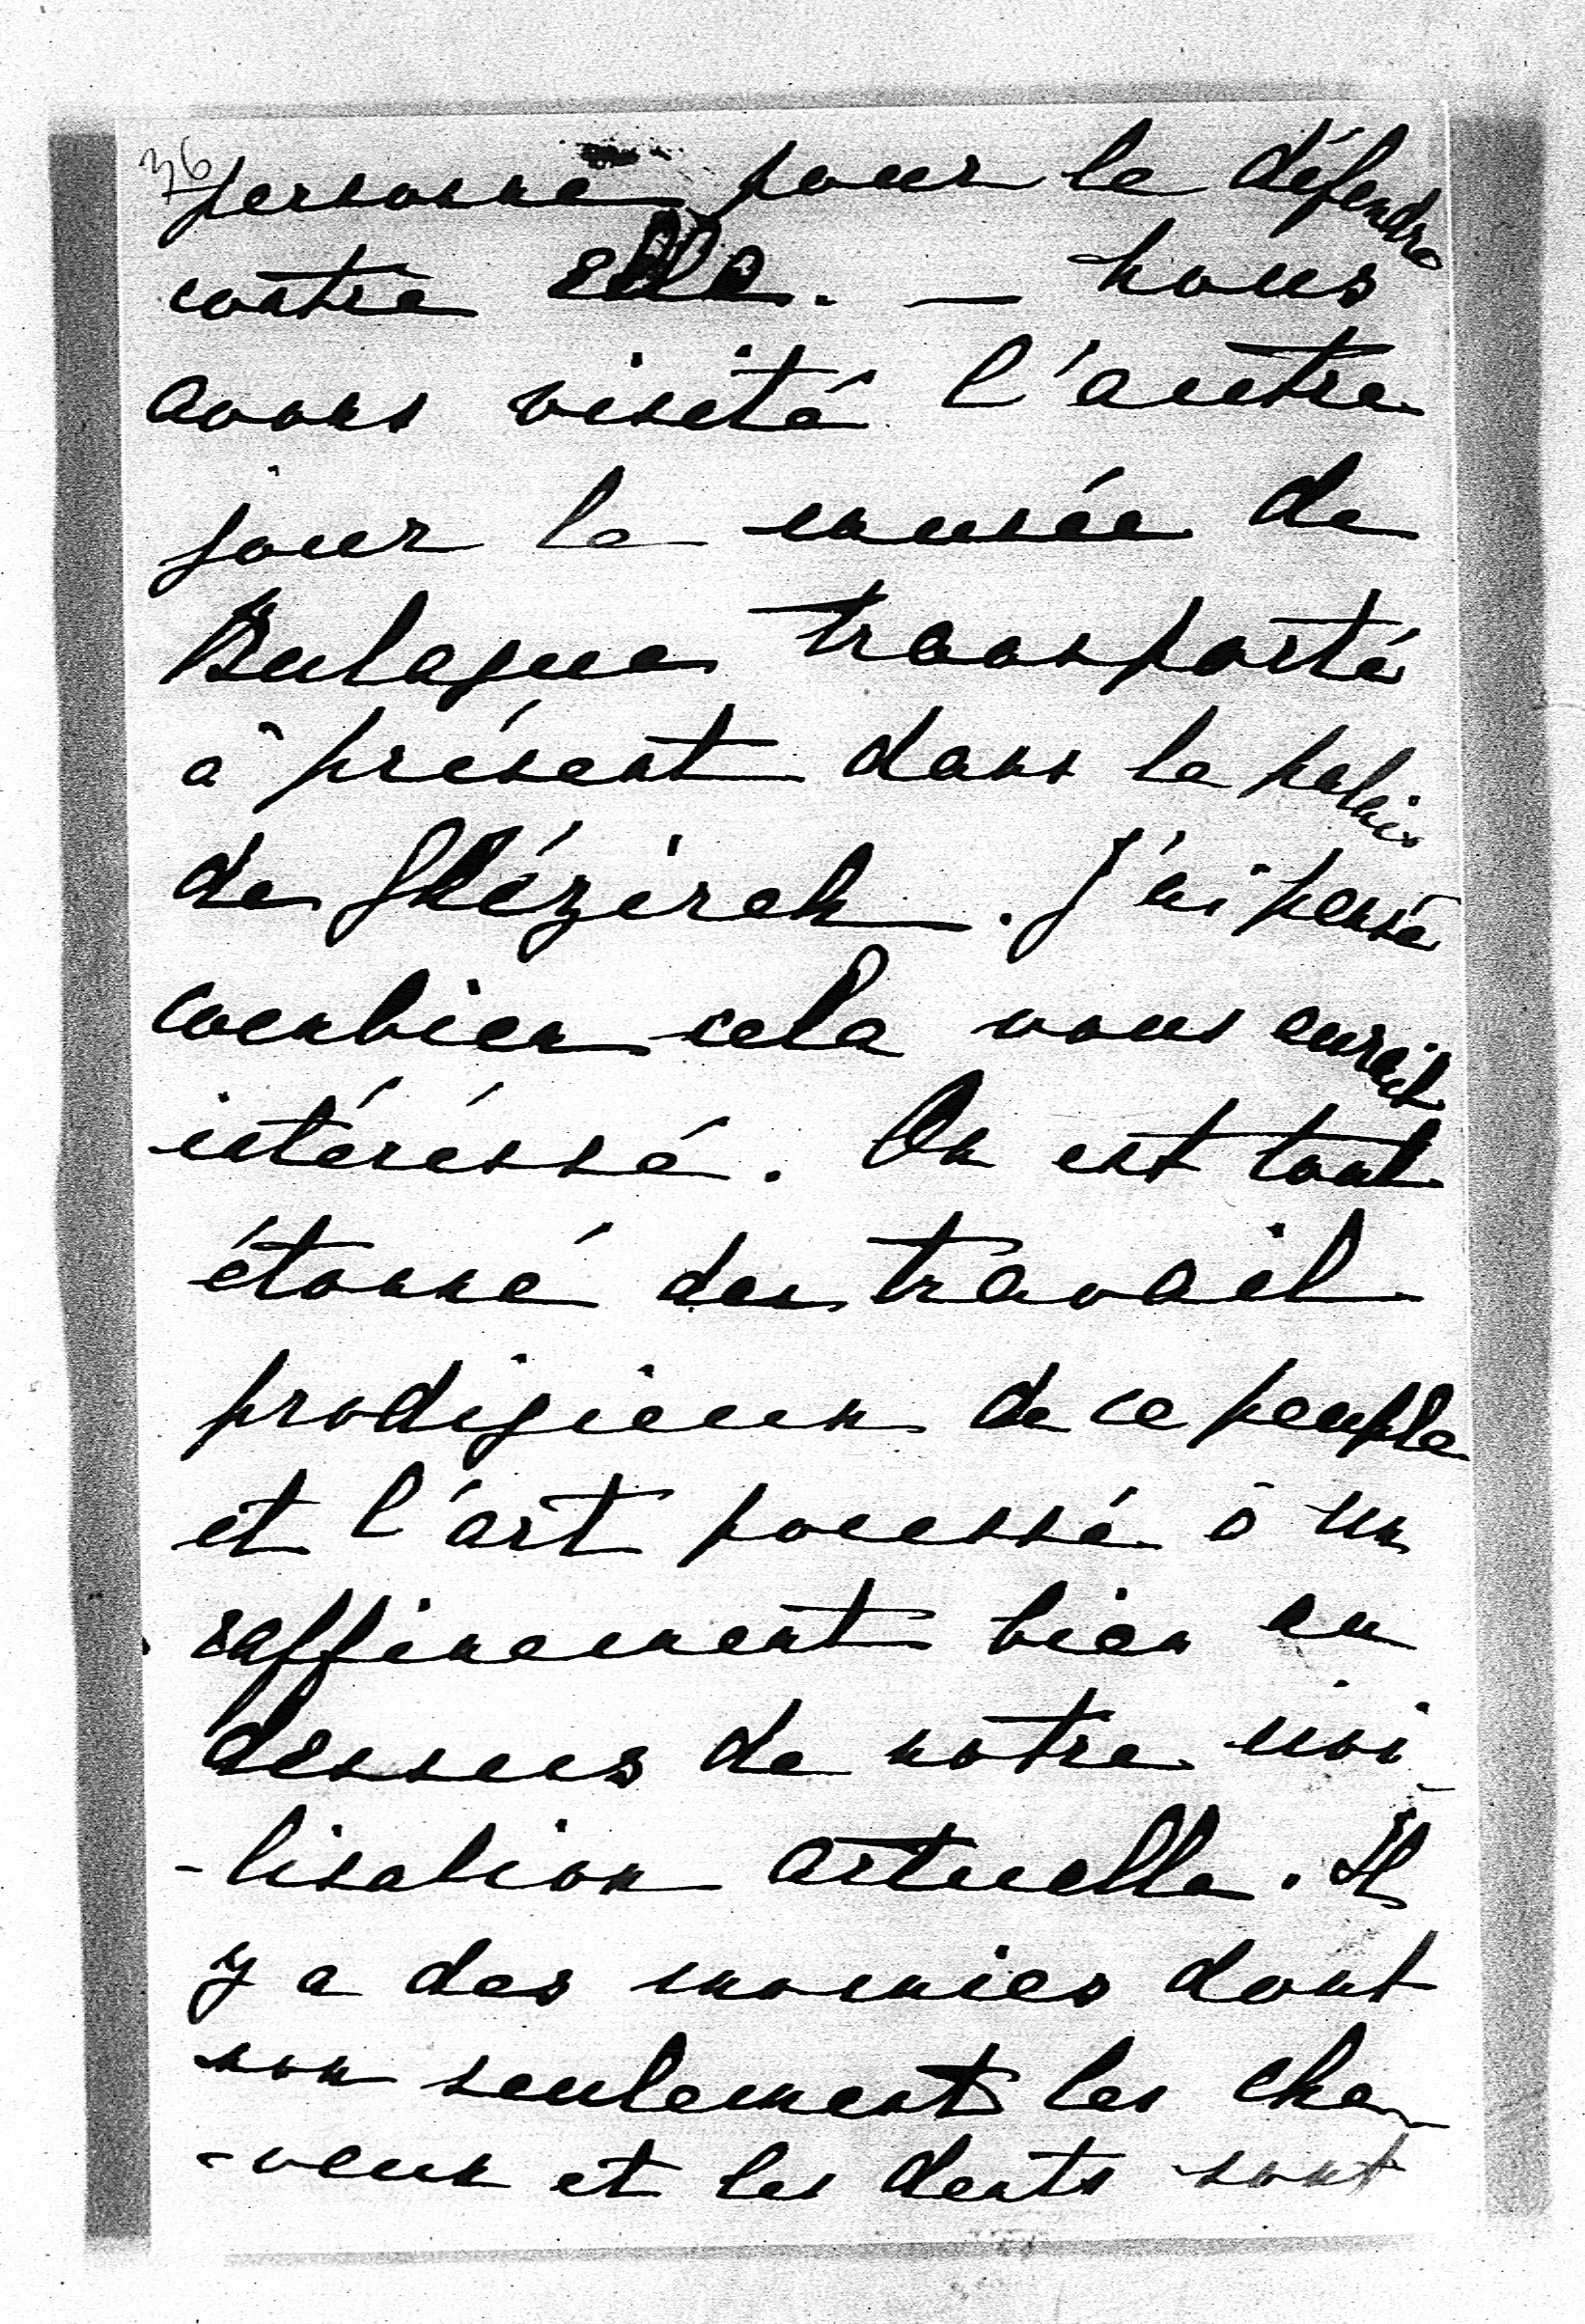 36
personne pour le défendre
contre elle. — nous
avons visité l'autre
jour le musée de
Bulaque transporté
à présent dans le palais
de Ghézireh. J'ai pensé
combien cela vous aurait
intéréssé. On est tout
étonné du travail
prodigieux de ce peuple
et l'art poussé à un
raffinement bien au
dessus de notre civi-
-lisation actuelle. Il
y a des momies dont
non seulement les che-
-veux et les dents sont